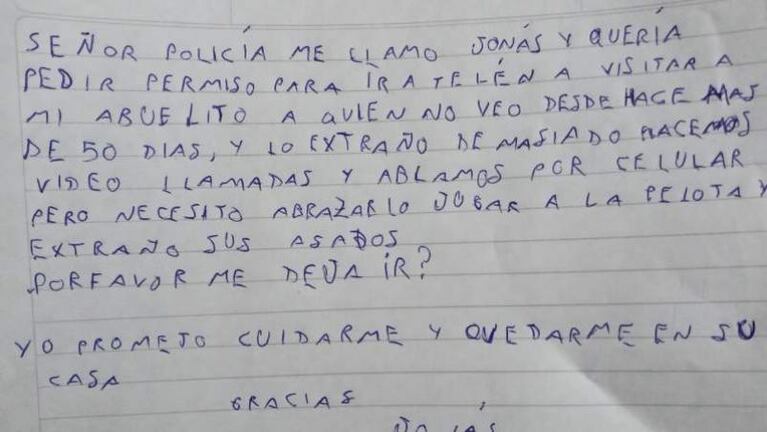 SEÑOR POLICÍA ME LLAMO JONÁS Y QUERÍA
PEDIR PERMISO PARA ÍR A TELÉN A VISITAR A
MI ABUELITO A QUIEN NO VEO DESDE HACE MAS
DE 50 DIAS, Y LO EXTRAÑO DEMASIADO HACEMOS
VIDEO LLAMADAS Y ABLAMOS POR CELULAR
PERO NECESITO ABRAZARLO JUGAR A LA PELOTA Y
EXTRAÑO SUS ASADOS
PORFAVOR ME DEJA ÍR?
YO PROMETO CUIDARME Y QUEDARME EN SU
CASA
GRACIAS
JONÁS